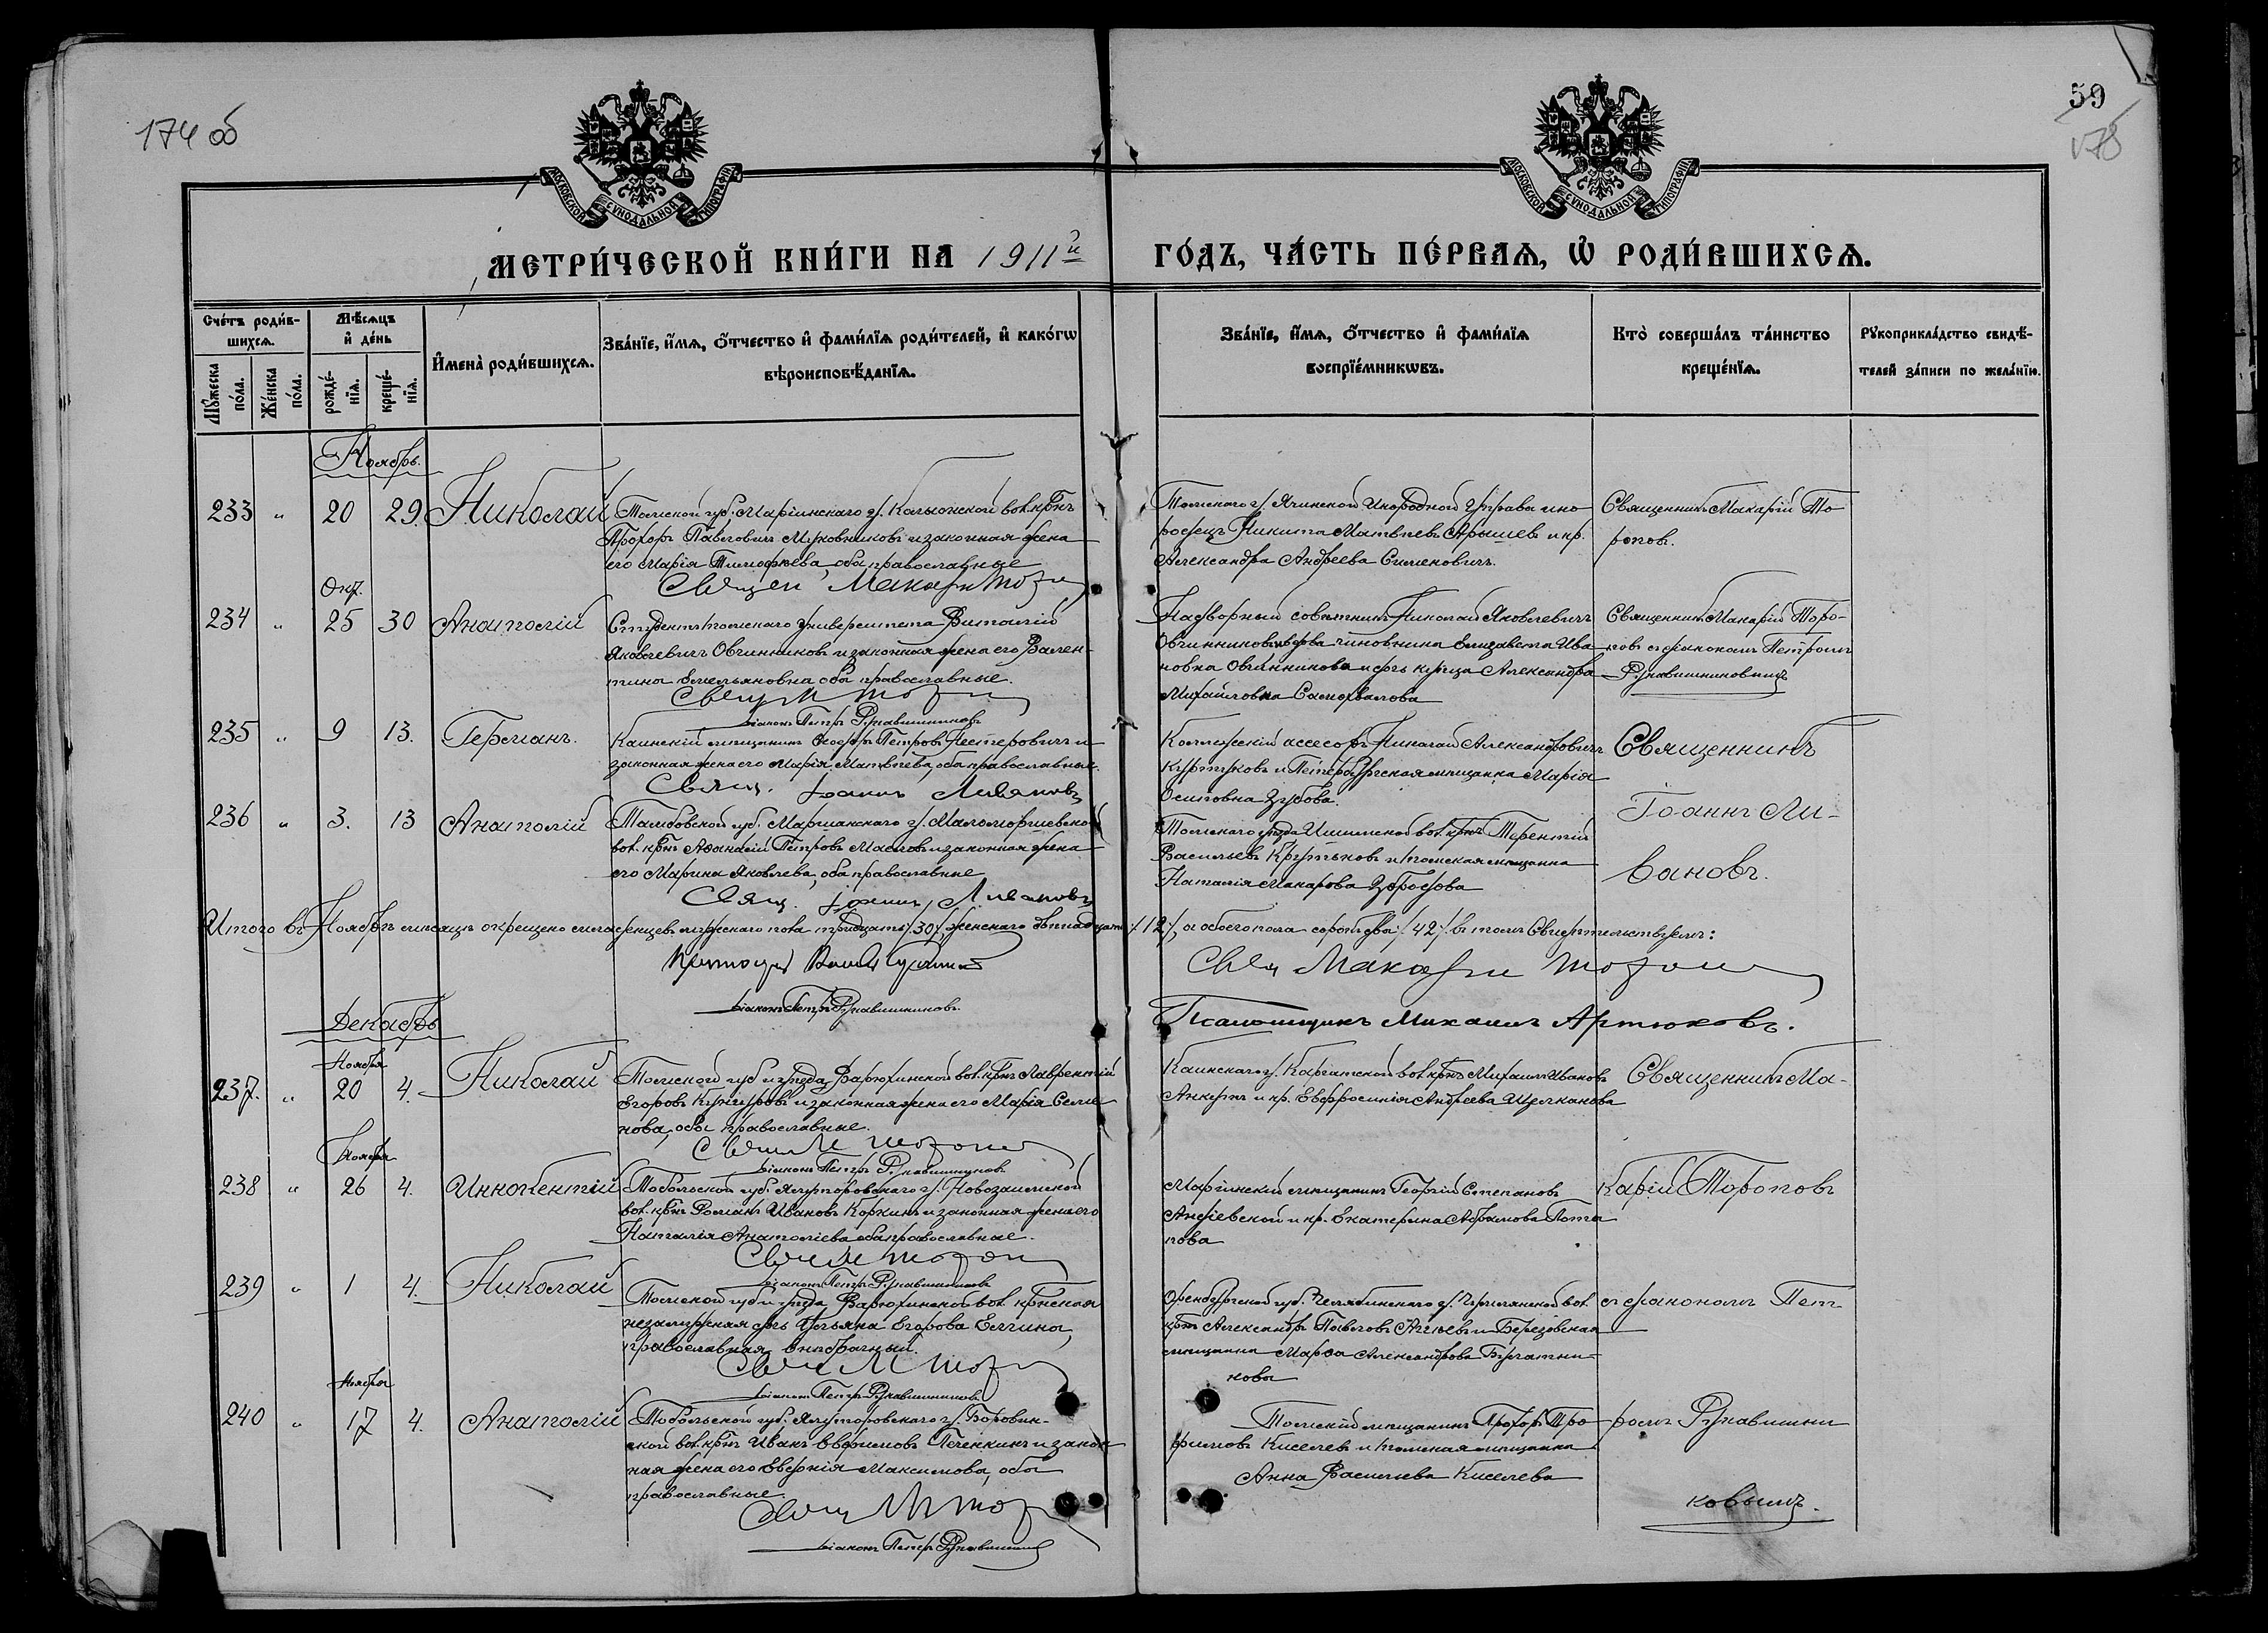 174 об
59
175
МОСКОВСКОЙ СѴНОДАЛЬНОЙ ТИПОГРАФІИ
МОСКОВСКОЙ СѴНОДАЛЬНОЙ ТИПОГРАФІИ
МЕТРИ́ЧЕСКОЙ КНИ́ГИ НА 1911й ГО́ДЪ, ЧА́СТЬ ПЕ́РВАѦ, Ѡ҆ РОДИ́ВШИХСѦ.
Сче́тъ роди́в-
шихсѧ.
Мꙋ́жеска по́ла.
Же́нска по́ла.
Мѣ́сѧцъ
и҆ де́нь
рожде́-
нїѧ.
креще́-
нїѧ.
И҆мена̀ роди́вшихсѧ.
Зва́нїе, и҆́мѧ, ѻ҆́тчество и҆ фами́лїѧ роди́телей, и҆ како́гѡ
вѣроисповѣ́данїѧ.
Зва́нїе, и҆́мѧ, ѻ҆́тчество и҆ фами́лїѧ
воспрїе́мникѡвъ.
Кто̀ соверша́лъ та́инство
креще́нїѧ.
Рꙋкоприкла́дство свидѣ́-
телей за́писи по жела́нїю.
Ноябрь.
233 " 20 29. Николай
Томской губ. Маріинскаго у. Колыонской вол. крнъ
Прохоръ Павловъ Муковниковъ и законная жена
его Марія Тимофѣева, оба православные
Томскаго у. Ячинской Инородной Управы ино
родецъ Никита Матвѣевъ Арышевъ и кр.
Александра Андреева Сименовичъ.
Священникъ Макарій То
роповъ.
Окт.
234 " 25 30 Анатолій
Студентъ томскаго университета Виталій
Яковлевичъ Овчинниковъ и законная жена его Вален-
тина Емельяновна оба православные.
Діаконъ Петръ Рукавишниковъ
Надворный совѣтникъ Николай Яковлевичъ
Овчинниковъ вдова чиновника Елизавета Ива
новна Овчинникова и дочь купца Александра
Михайловна Самохвалова
Священникъ Макарій Торо-
повъ съ діакономъ Петромъ
Рукавишниковымъ
235 " 9 13. Германъ.
Каинскій мѣщанинъ Ѳеодоръ Петровъ Нестеровичъ и
законная жена его Марія Матвѣева, оба православные.
Свящ. Іоаннъ Ливановъ
Коллежскій ассесоръ Николай Александровичъ
Куртуковъ и Петербургская мѣщанка Марія
Осиповна Зубова.
Священникъ
Іоаннъ Ли-
вановъ.
236 " 3. 13 Анатолій
Тамбовской губ. Маршанскаго у. Маломоршевской
вол. крнъ Аѳанасій Петровъ Масловъ и законная жена
его Марина Яковлева, оба православные
Свящ. Іоаннъ Ливановъ
Томскаго уѣзда Ишимской вол. крнъ Терентій
Васильевъ Крутьковъ и томская мѣщанка
Наталія Макарова
Итого въ Ноябрѣ мѣсяцѣ окрещено младенцевъ мужескаго пола тридцать /30/, женскаго двѣнадцать /12/, а обоего пола сорокъ два /42/. въ томъ Свидѣтельствуемъ:
Діаконъ Петръ Рукавишниковъ.
Псаломщикъ Михаилъ Артюховъ.
Декабрь
Ноября
237. " 20 4. Николай
Томской губ. и уѣзда, Варюхинской вол. крнъ Лаврентій
Егоровъ Кунгуровъ и законная жена его Марія Семе
нова, оба православные.
Діаконъ Петръ Рукавишниковъ
Каинскаго у. Каргатской вол. крнъ Михаилъ Ивановъ
Анкудъ и кр. Евфросинія Андреева Щелканова
Священникъ Ма-
Ноября
238 " 26 4. Иннокентій
Тобольской губ. Ялуторовскаго у. Новозаимской
вол. крнъ Романъ Ивановъ Коркинъ и законная жена его
Наталія Анатоліева оба православные.
Діаконъ Петръ Рукавишниковъ
Маріинскій мѣщанинъ Георгій Степановъ
Ансіевской и кр. Екатерина Абрамова Пота
пова
карій Тороповъ
239 " 1 4. Николай
Томской губ. и уѣзда, Варюхинской вол. крнская
незамужняя дочь Ульяна Егорова Елгина,
православная, внѣбрачный.
Діаконъ Петръ Рукавишниковъ
Оренбургской губ. Челябинскаго у. Куртамской вол.
крнъ Александръ Павловъ и Березовская
мѣщанка Марѳа Александрова Бургатни-
кова
съ діакономъ Пет
Ноября
240 " 17 4. Анатолій
Тобольской губ. Ялуторовскаго у. Боровин-
ской вол. крнъ Иванъ Евфимовъ Печенкинъ и закон
ная жена его Евдокія Максимова, оба
православные.
Діаконъ Петръ Рукавишниковъ
Томскій мѣщанинъ Прохоръ Тро
фимовъ Киселевъ и томская мѣщанка
Анна Васильева Киселева
ромъ Рукавишни
ковымъ.